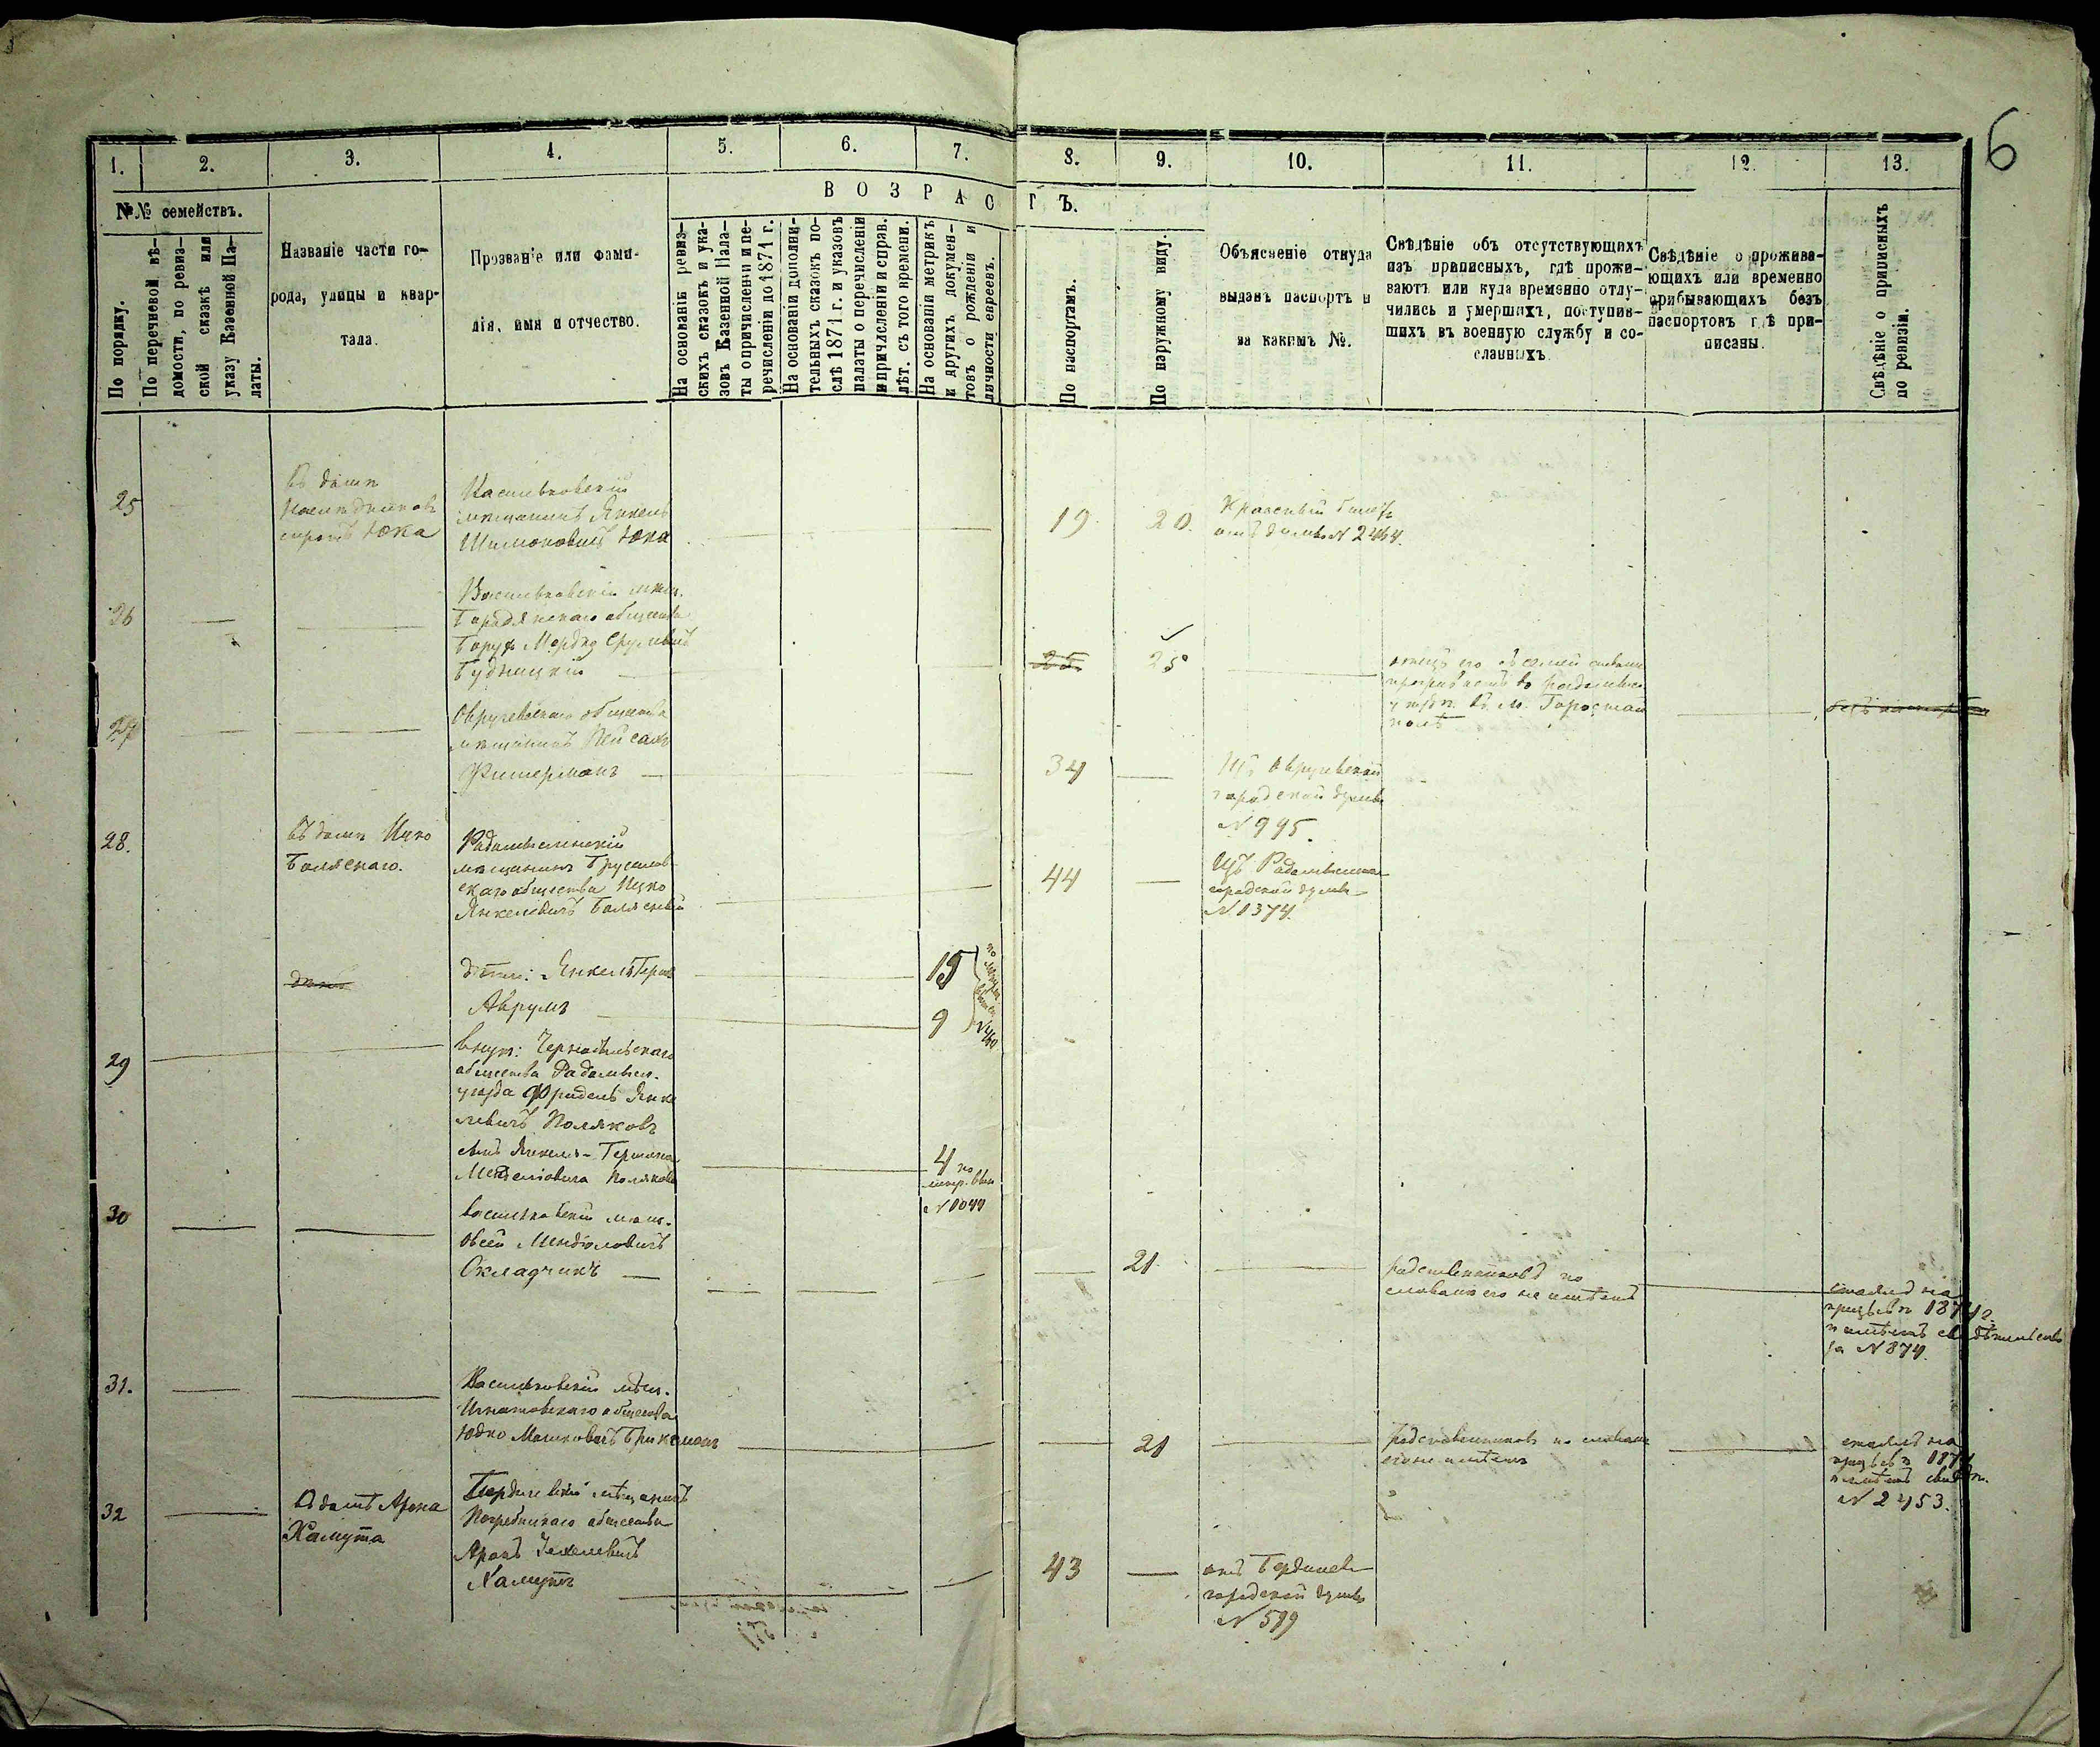 6
1.
2.
3.
4.
5.
6.
7.
8.
9.
10.
11.
12.
13.
№№ семействъ.
ВОЗРАСТЪ.
По порядку.
По перечневой вѣ-
домости, по ревиз-
ской сказкѣ или
указу Казенной Па-
латы.
Названіе части го-
рода, улицы и квар-
тала.
Прозваніе или фами-
лія, имя и отчество.
На основаніи ревиз-
скихъ сказокъ и ука-
зовъ Казенной Пала-
ты о причислени и пе-
речислени до 1871 г.
На основаніи дополни-
тельныхъ сказокъ по-
слѣ 1871 г. и указовъ
палаты о перечислени
и причислени и справ.
лѣт. съ того времени.
На основаніи метрикъ
и другихъ докумен-
товъ о рожденіи и
личности евреевъ.
По паспортамъ.
По наружному виду.
Объясненіе откуда
выданъ паспортъ и
за какимъ №.
Свѣдѣніе объ отсутствующихъ
изъ приписныхъ, гдѣ прожи-
ваютъ или куда временно отлу-
чились и умершихъ, поступив-
шихъ въ военную службу и со-
сланныхъ.
Свѣдѣніе о прожива-
ющихъ или временно
прибывающихъ безъ
паспортовъ гдѣ при-
писаны.
Свѣдѣніе о приписныхъ
по ревизіи.
25
Въ домѣ
сиротъ Юка
Васильковскій
мѣщанинъ Янкель
Шимоновичъ Юка
19
20.
Красный билетъ
думы № 2464.
26
Васильковскій мѣщ.
общества
Борухъ Мордко Сруливичъ
Будницкій
25
25
отецъ его съ семьей
проживаетъ въ Радомысл.
уѣздѣ въ м. Горностай
полѣ
27
Овручевскаго общества
мѣщанинъ Пейсахъ
Фишерманъ
34
Изъ Овручевской
городской думы
№ 995.
28.
Въ домѣ Ицко
Болясного.
Радомысльскій
мѣщанинъ Брусилов
скаго общества Ицко
Янкелевичъ Болясный
44
Изъ Радомысльской
городской думы
№ 1374.
дѣти: Янкель Герш
15
Аврумъ
9
29
внук: Чернобыльскаго
общества Радомысл.
уѣзда Фридель Янке
левичъ Поляковъ
сынъ Янкель-Гершона
Менделіовича Полякова
4 по
метр. вып
№ 1044
30
Васильковскій мѣщ.
Овсей Мендіоловичъ
Складчикъ
21
родственниковъ по
словамъ его не имѣетъ
стоялъ на
призывѣ 1874 г.
и имѣетъ свидѣтельство
за № 874.
31.
Васильковскій мѣщ.
Игнатовскаго общества
Юдко Мошковичъ Брикманъ
21
родственниковъ по словамъ
его не имѣетъ
стоялъ на
призывѣ 1874
имѣетъ свидѣт.
№ 2453.
32
Въ домѣ Арона
Хамута
Бердичевскій мѣщанинъ
Погребищаго общества
Аронъ
Хамутъ
43
отъ Бердичев
городской думы
№ 599